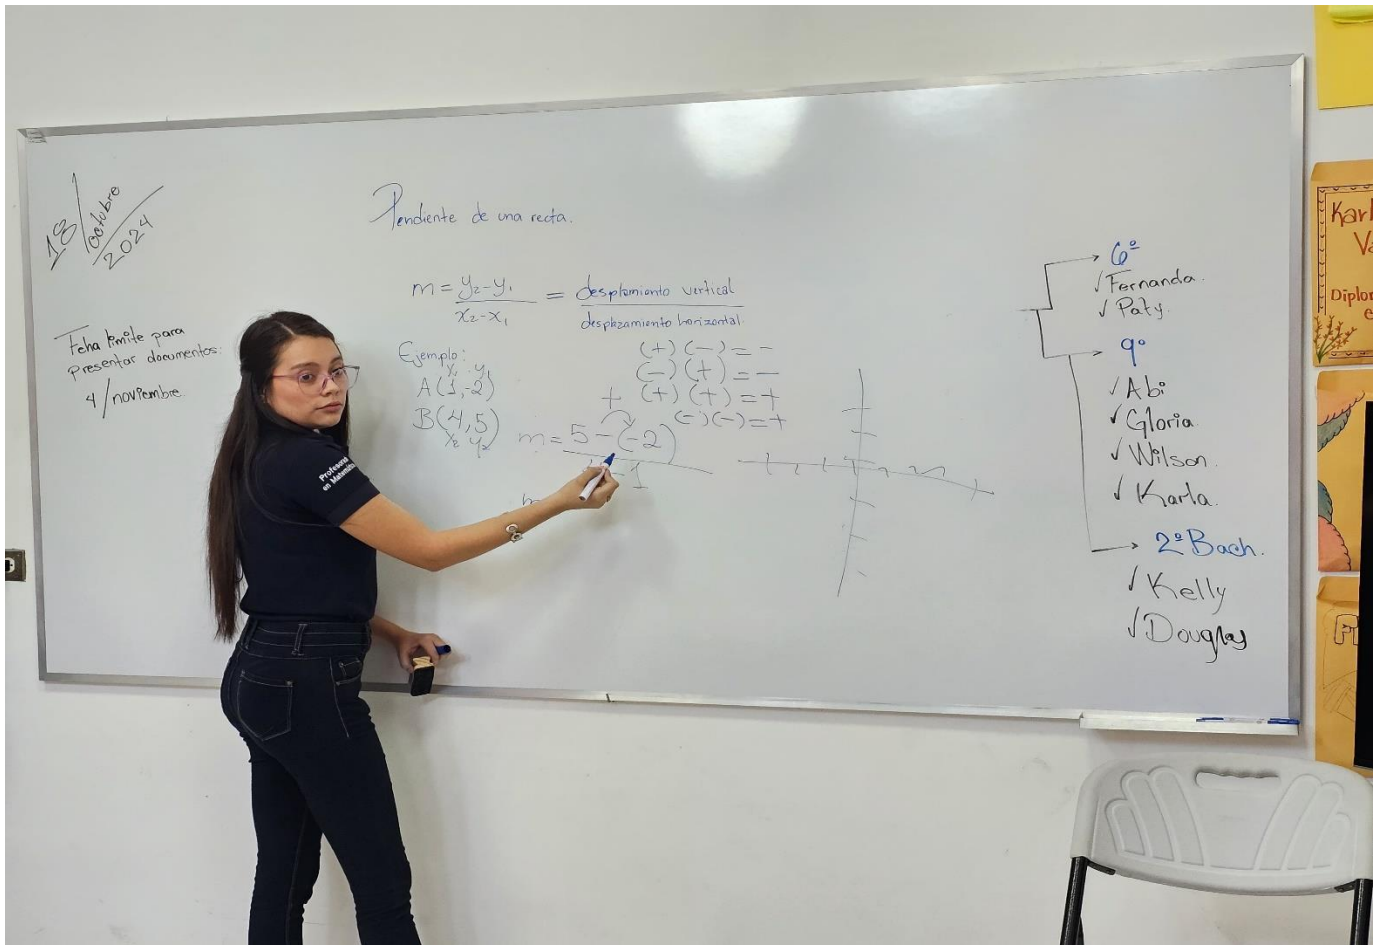 18/octubre
2024
Feha límite para
presentar documentos:
4/noviembre.
Pendiente de una recta.
m = y2-y1 / x2-x1 = desplamiento vertical / desplazamiento horizontal.
Ejemplo:
x1 y1
A(1,-2)
B(4,5)
x2 y2
(+)(-)=-
(-)(+)=-
(+)(+)=+
(-)(-)=+
+
m= 5-(-2)
1
Profesorado
en Matemática
6º
✓Fernanda.
✓Paty.
9º
✓Abi
✓Gloria.
✓Wilson.
✓Karla.
2º Bach.
✓Kelly
✓Douglas